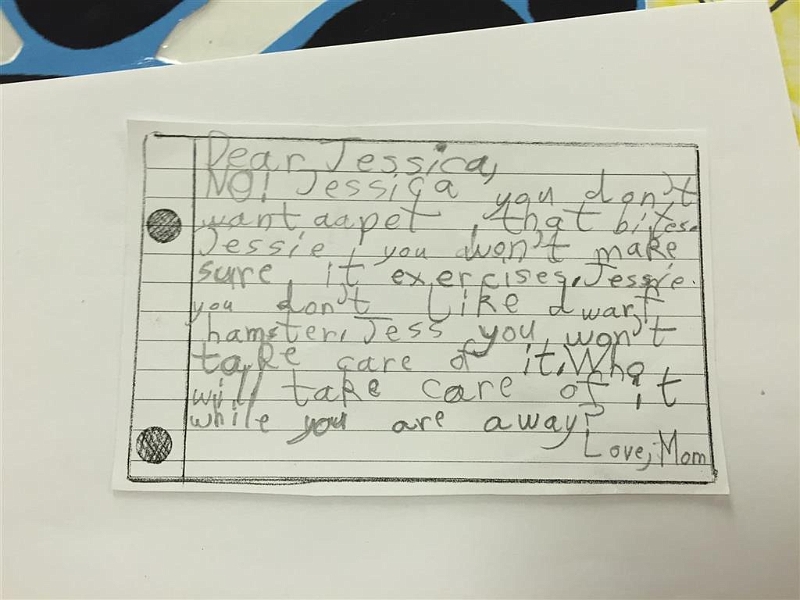 Dear Jessica,
NO! Jessica you don't
want aapet, that bites.
Jessie, you won't make
sure it exercises. Jessie.
you don't like dwarf
hamster, Jess you won't
take care of it. Who
will take care of it
while you are away?
Love, Mom